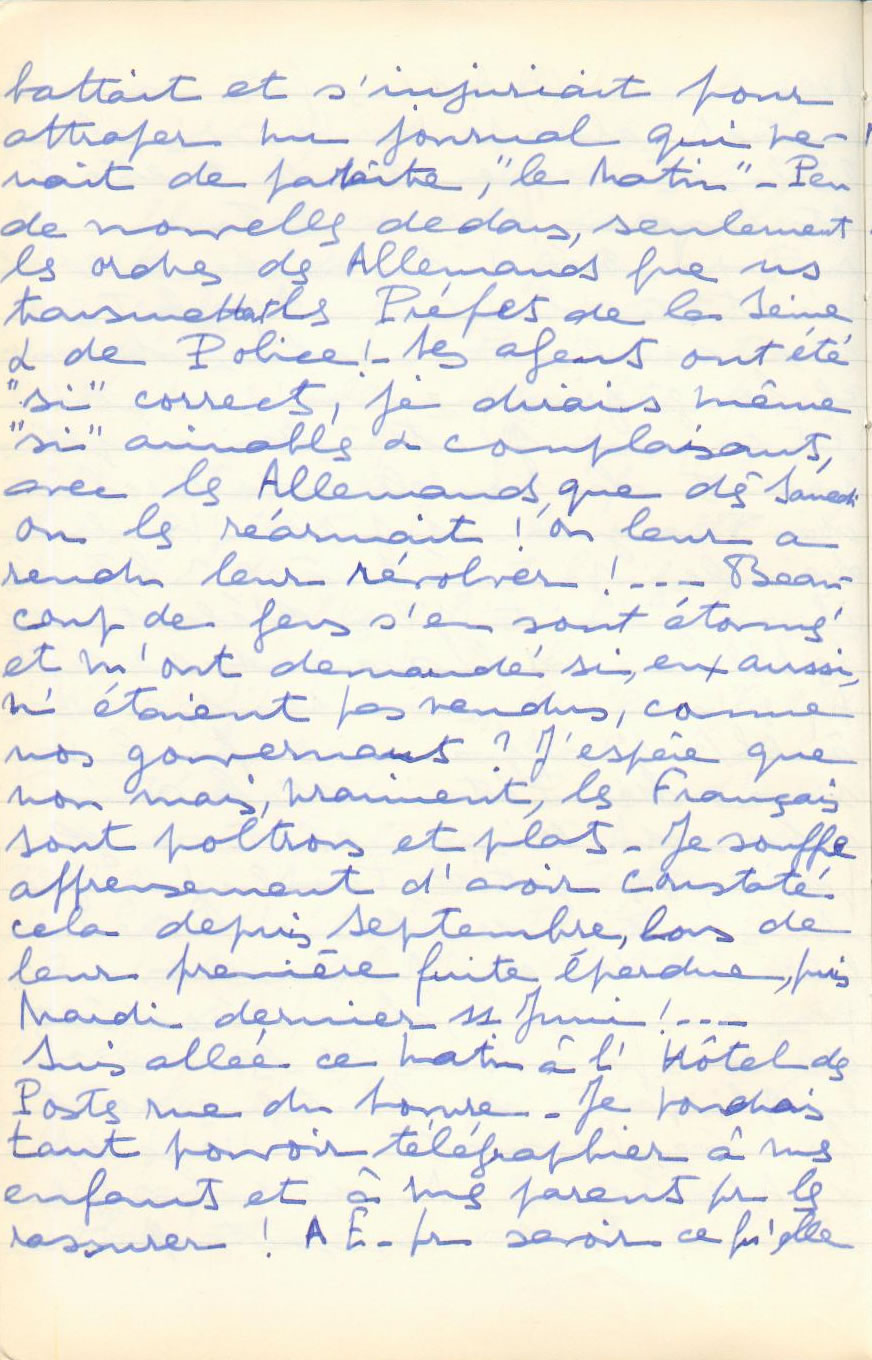 battait et s'injuriait pour
attraper un journal qui ve-
nait de paraître, "le Matin" - Peu
de nouvelles dedans, seulement
les ordres des Allemands que ns
transmettent les Préfets de la Seine
& de Police ! - Les agents ont été
"si" corrects, je dirais même
"si" aimables & complaisants,
avec les Allemands, que dès Samedi
on les réarmait ! on leur a
rendu leur révolver ! - - - Beau-
coup de gens s'en sont étonnés
et m'ont demandé si, eux aussi,
n'étaient pas vendus, comme
nos gouvernants ? J'espère que
non mais, vraiment, les Français
sont poltrons et plats - Je souffre
affreusement d'avoir constaté
cela depuis Septembre, lors de
leur première fuite éperdue, puis
Mardi dernier 11 Juin ! - - -
Suis allée ce matin à l'Hôtel des
Postes rue du Louvre - Je voudrais
tant pouvoir télégraphier à mes
enfants et à mes parents pr les
rassurer ! A E - pr savoir ce qu'elle